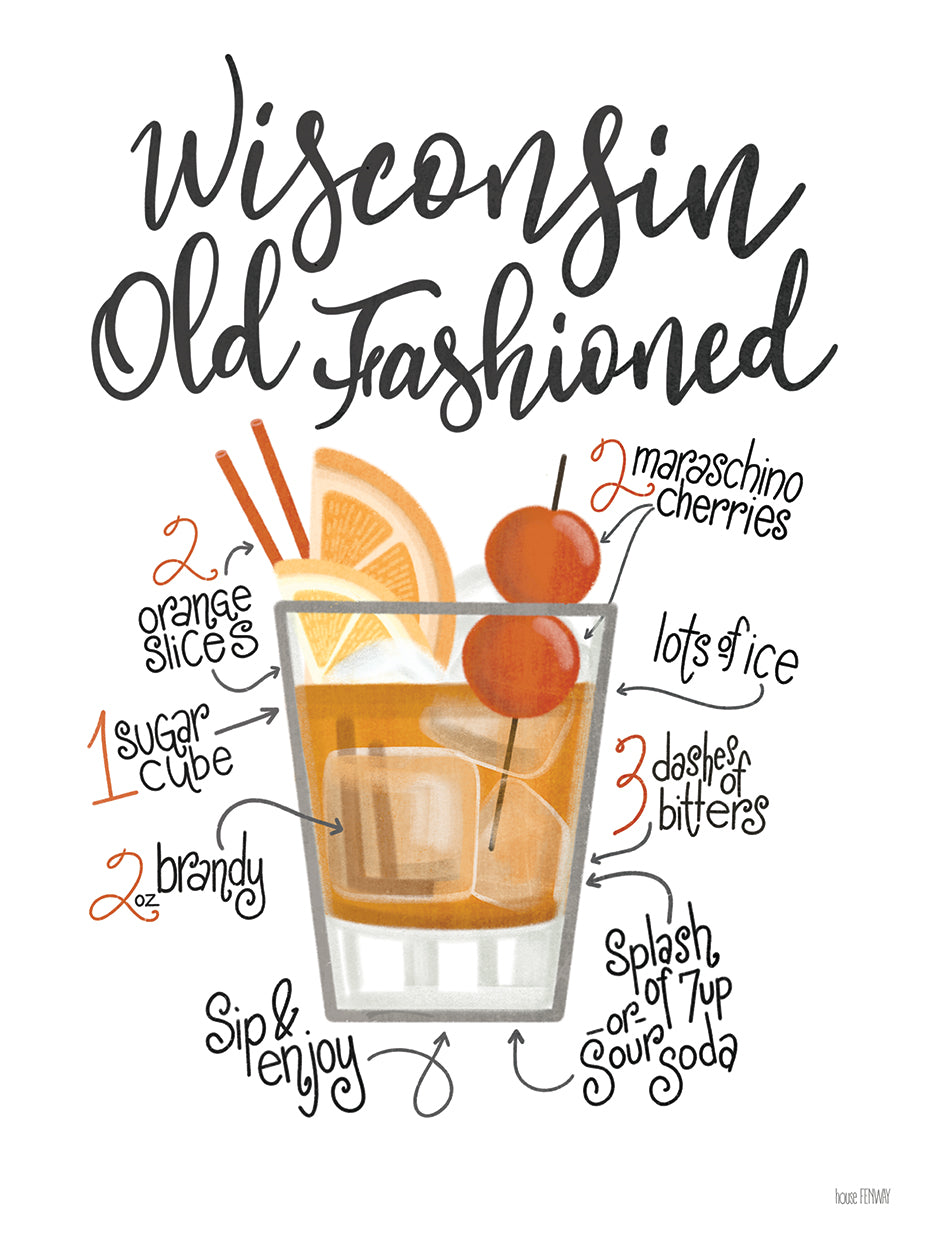 Wisconsin
Old Fashioned
2 maraschino
cherries
2
orange
slices
lots of ice
1 sugar
cube
3 dashes of
bitters
2 oz brandy
Splash
of 7up
-or-
Sour
soda
Sip &
enjoy
house FENWAY